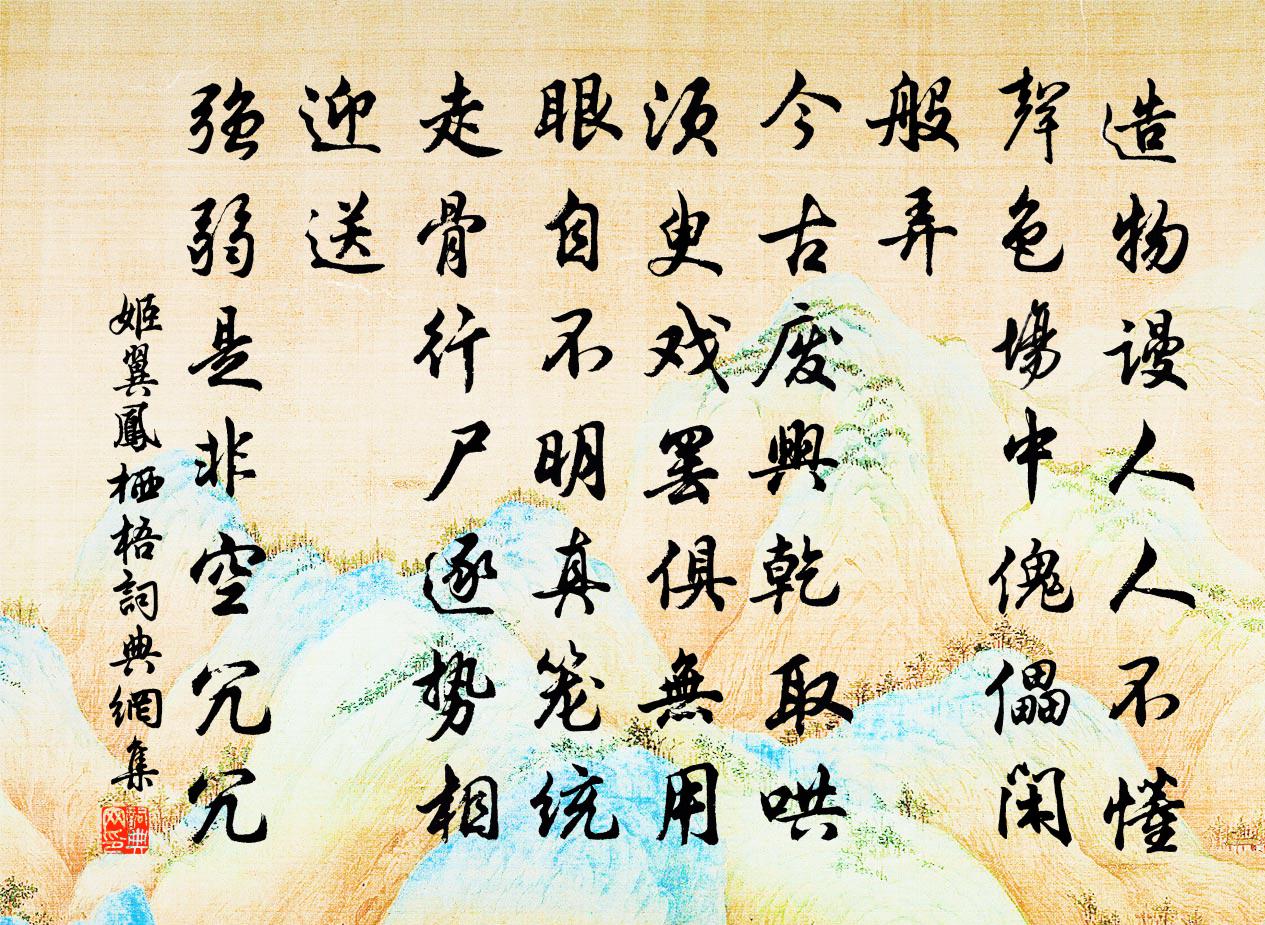 造物謾人人不懂
聲色場中傀儡閑
般弄
今古废興乾取哄
须臾戏罢俱無用
眼自不明真笼统
走骨行尸逐势相
迎送
强弱是非空冗冗
姬翼鳳栖梧詞典網集
詞典网印